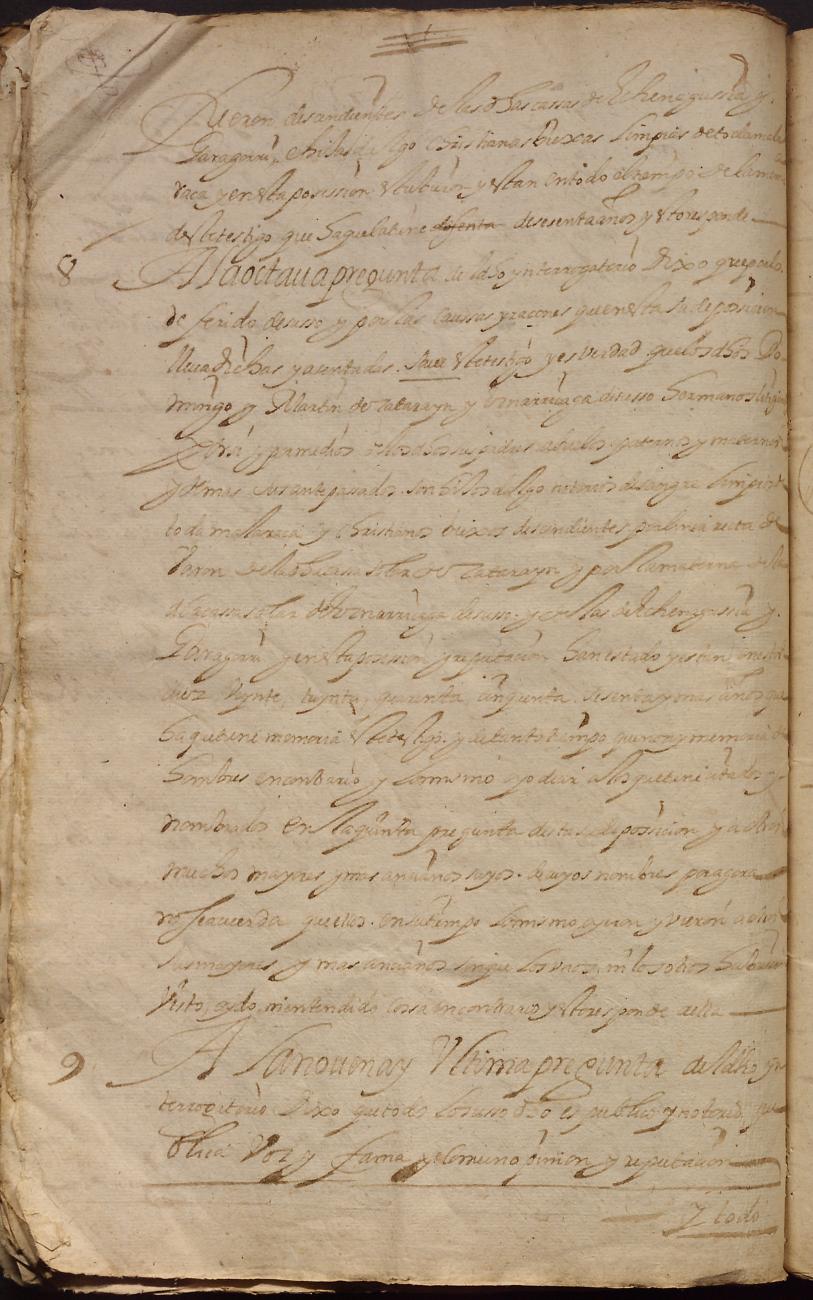 fueron desçendientes de las dhas cassas de Echenagussia y
Garagorri, e hijosdalgo christianos viexos limpios de toda mala
raça y en esta posesion estubieron y estan en todo el tiempo de la memoria
de este testigo que haquelatiene de sesenta años y esto responde
8 A la octaua pregunta del dho ynterrogatorio Dixo que por lo
de ferido desusso y por las caussas y raçones que en esta su deposicion
lleua dichas y asentadas. saue este testigo y es verdad que los dhos Do-
mingo y Martin de Zatarayn y desusso hermanos
por si y por medio de los dhos sus padres abuelos paternos y maternos
y demas sus antepasados son hijosdalgo notorios de sangre limpios de
toda mala raca y christianos viexos desçendientes por linea recta de
Varon de la dha casa solar de Zatarayn y por la materna de la
dha casa solar de desusso y de las de Echenagussia y
Garagorri y en esta posesion y reputaçion han estado y estan
diez, Veynte, treynta, quarenta, çinquenta, sesenta y mas años que
ha que tiene memoria este testigo. y de tanto tiempo que no ay memoria de
hombres en contrario y lo mismo oyo deçir a los que tiene çitados y
nombrados en la quinta pregunta desta su deposiçion y a otros
muchos mayores y mas ançianos suyos. de cuyos nombres por agora
no se acuerda que ellos. en su tiempo lo mismo oyeron y vieron a otros
sus mayores y mas ançianos sin que los vnos ni los otros hubiesen
visto, oydo, ni entendido cossa en contrario y esto responde a ella
9 A la nouena y Vltima pregunta del dho yn-
terrogatorio Dixo que todo lo susso dho es publico y notorio pu-
blica Voz y fama y comun opinion y reputaçion
y todo